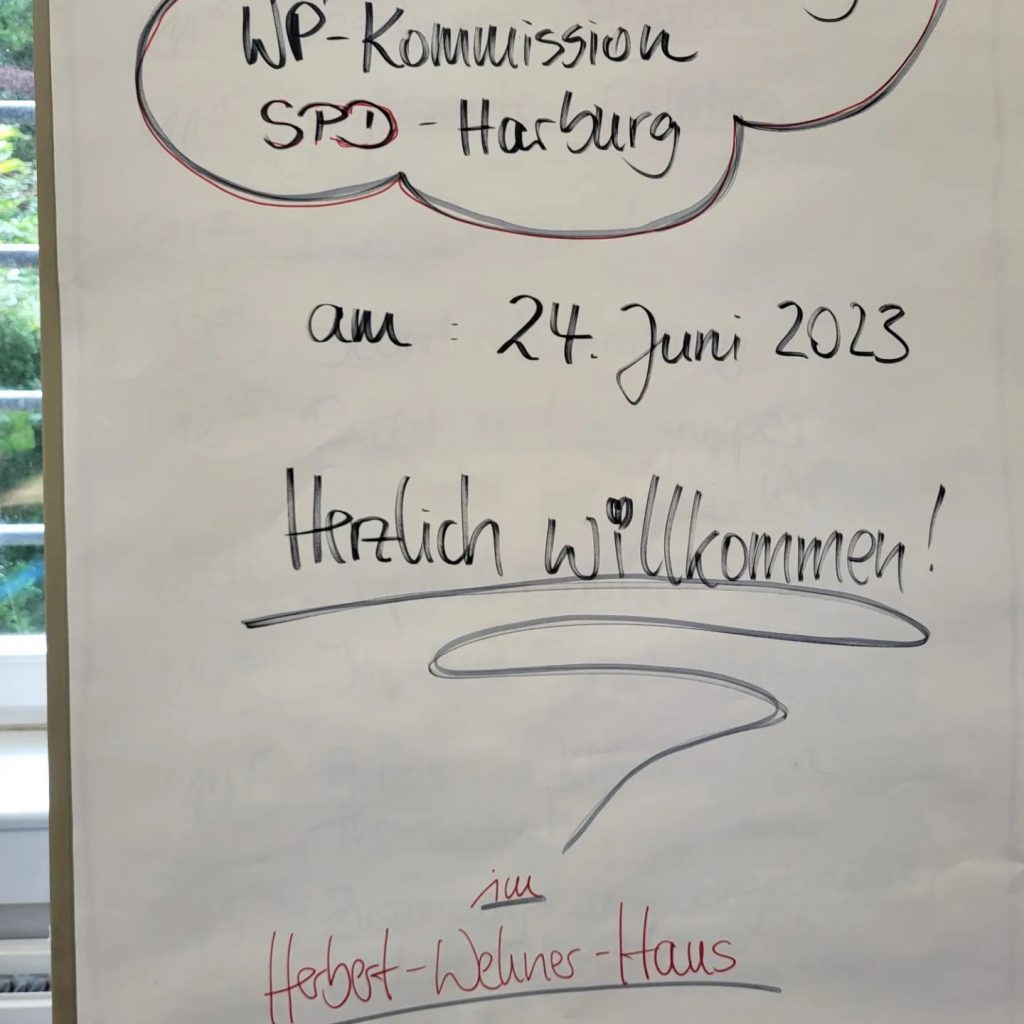 WP-Kommission
SPD - Harburg
am : 24. Juni 2023
Herzlich willkommen!
im
Herbert-Wehner-Haus